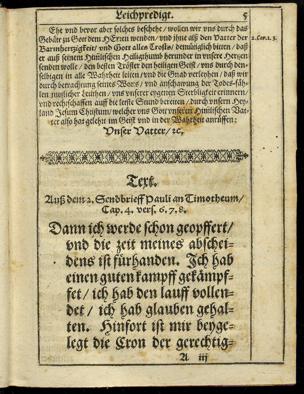 Leichpredigt. 5
Ehe vnd bevor aber solches beschehe / wollen wir vns durch das
Gebätt zu Gott dem HErrn wenden / vnd jhne als den Vatter der
Barmhertzigkeit / vnd Gott alles Trosts / demütiglich bitten / daß
2. Cor. 1. 3.
er auß seinem Himlischen Heiligthumb herunder in vnsere Hertzen
senden wolle / den besten Tröster den heiligen Geist / vns durch den-
selbigen in alle Wahrheit leiten / vnd die Gnad verleyhen / daß wir
durch betrachtung seines Worts / vnd anschawung der Todesfäh-
len vnserer eygenen Sterbligkeit erinnern /
vnd rechtschaffen auff die letste Stund bereiten / durch vnsern Hey-
land Jesum Christum / welcher vns Gott vnseren Himlischen Vat-
ter also hat gelehrt im Geist vnd in der Wahrheit anruffen:
Vnser Vatter / ꝛc.
Text.
Auß dem 2. Sendbrieff Pauli an Timotheum /
Cap. 4. vers. 6. 7. 8.
Dann ich werde schon geopffert /
vnd die zeit meines abschei-
dens ist fürhanden. Ich hab
einen guten kampff gekämpf-
fet / ich hab den lauff vollen-
det / ich hab glauben gehal-
ten. Hinfort ist mir beyge-
legt die Cron der gerechtig-
A iij